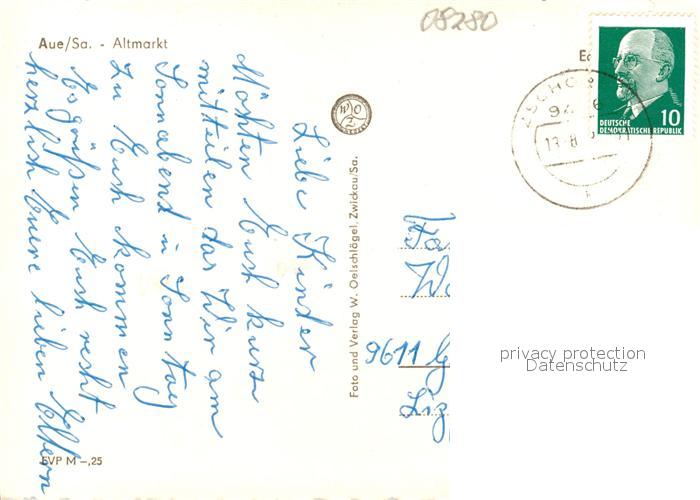 08280
Aue/Sa. - Altmarkt
DEUTSCHE
DEMOKRATISCHE REPUBLIK
10
ZSCHO
94
13.-8
Liebe Kinder
Möhten Euch kurz
mitteilen das Wir am
Sonnabend u Sonntag
zu Euch kommen
Es grüßen Euch recht
herzlich Euere lieben Eltern
W O
Z
Foto und Verlag W. Oelschlägel, Zwickau/Sa.
Fa
9611
EVP M -,25
privacy protection
Datenschutz